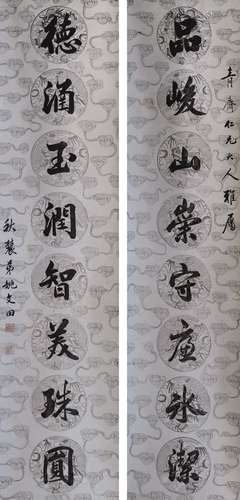 仁兄大人雅屬
品峻山崇守廉冰潔
德涵玉潤智美珠圓
秋農弟姚文田